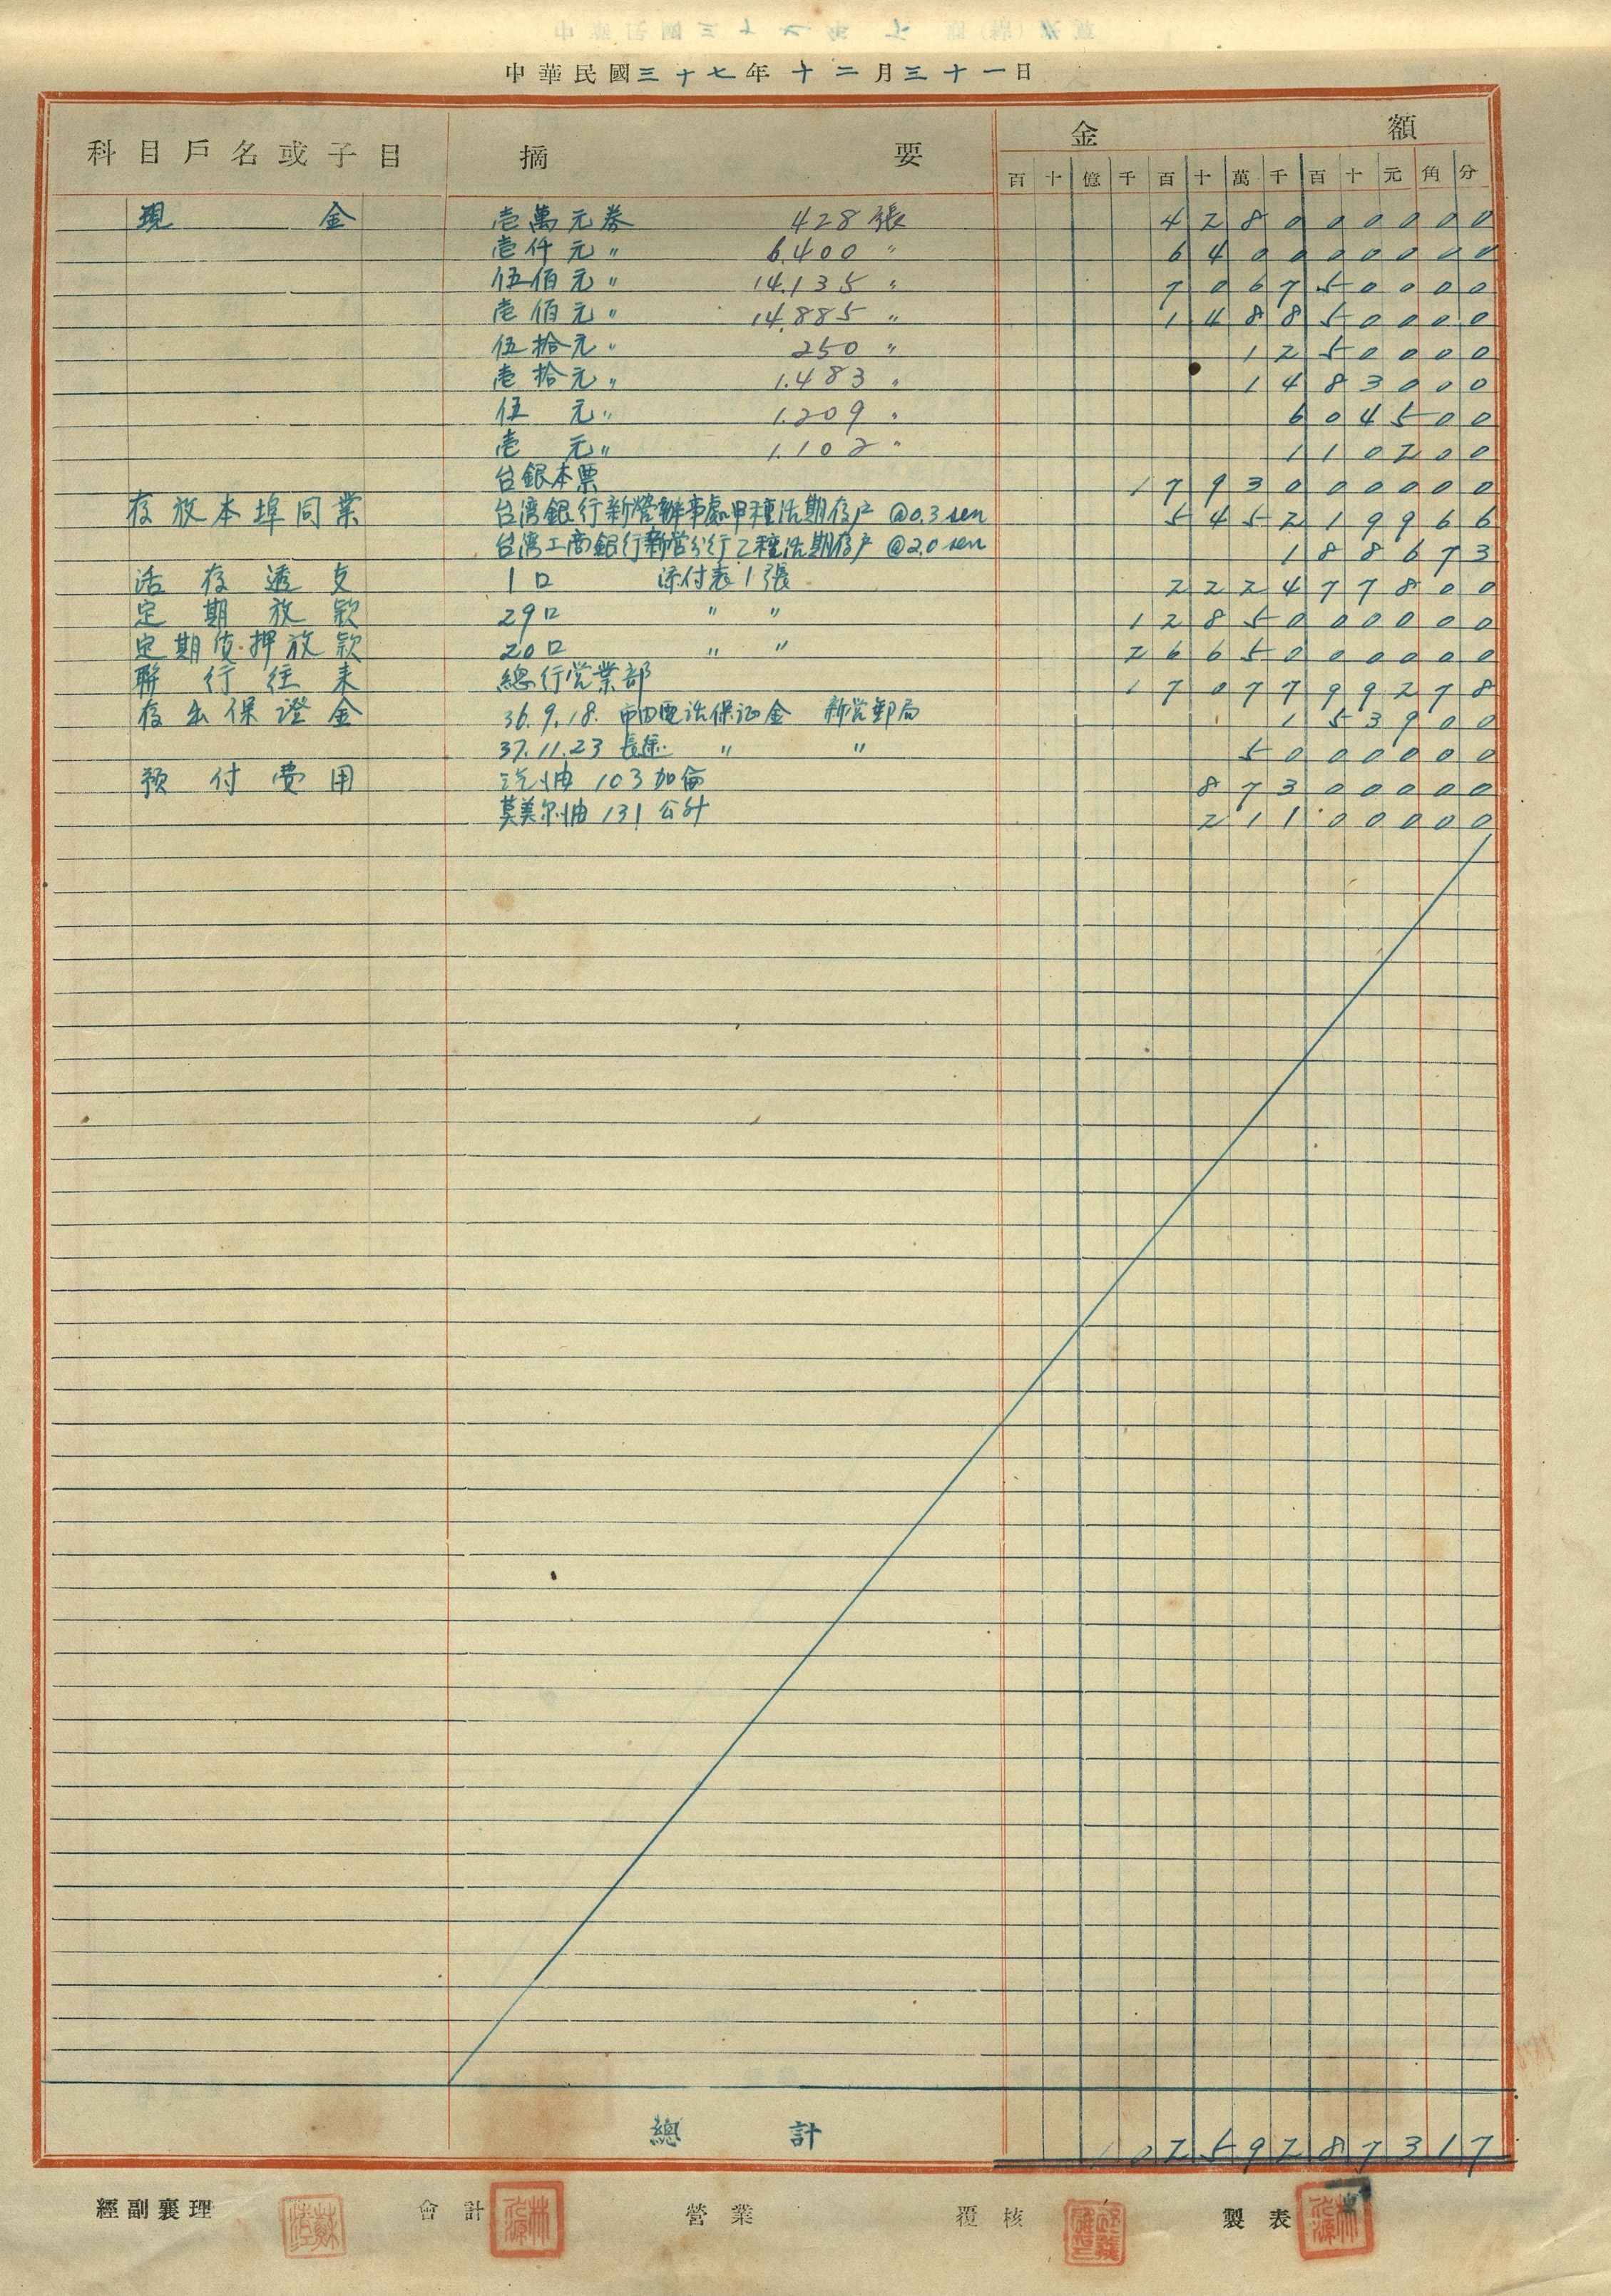 中華民國三十七年十二月三十一日
科目戶名或子目 摘要 金額
百 十 億 千 百 十 萬 千 百 十 元 角 分
現金 壱萬元券 428張 428000000
壱仟元〃 6.400〃 640000000
伍佰元〃 14.135〃 706750000
壱佰元〃 14.885〃 148850000
伍拾元〃 250〃 1250000
壱拾元〃 1.483〃 1483000
伍元〃 1.209〃 604500
壱元〃 1.102〃 110200
台銀本票 1793000000
存放本埠同業 台湾銀行新營辦事處甲種活期存戸 @0.3 sen 545219966
台湾工商銀行新営分行乙種活期存戸 @2.0 sen 188673
活存透支 1口 添付表1張 222477800
定期放款 29口 〃 〃 1285000000
定期質押放款 20口 〃 〃 2665000000
聯行往来 總行営業部 1707799278
存出保證金 36.9.18. 市内電话保証金 新営郵局 153900
37.11.23 長途 〃 〃 5000000
預付費用 汽油 103加侖 87300000
莫美尔油 131公升 21100000
總計 10259287317
經副襄理 會計 營業 覆核 製表